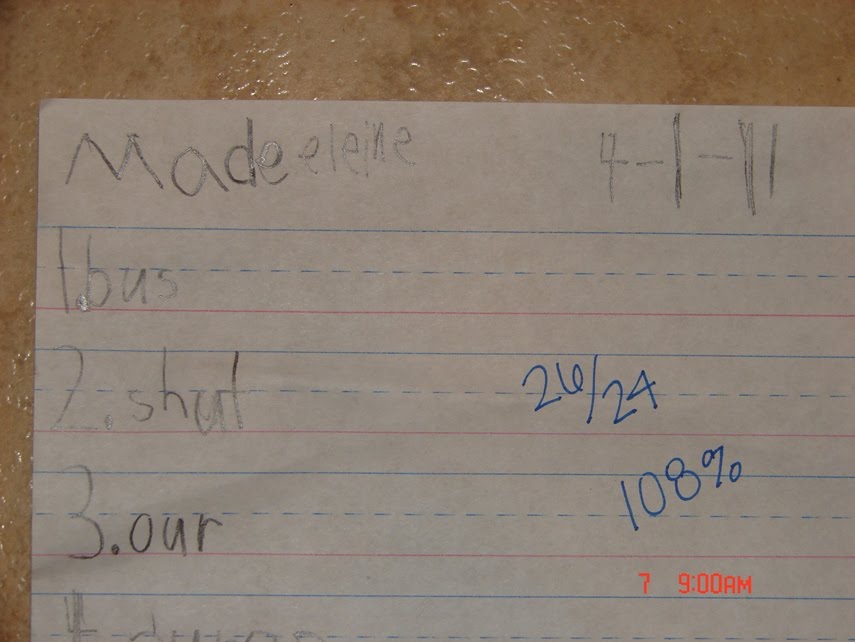 Madeeleine 4-1-11
1. bus
2. shut
26/24
108%
3. our
7 9:00AM
4.